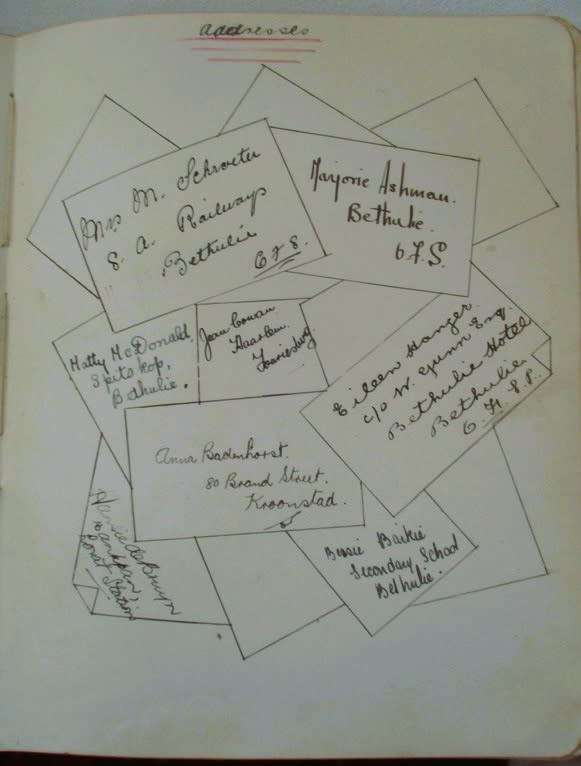 addresses
Mrs M. Schroeter
S. A. Railways
Bethulie
O F S.
Marjorie Ashman.
Bethulie.
O.F.S.
Matty McDonald,
Spitskop,
Bethulie.
Jean Cowan
Haarlem
Eileen Hanger.
c/o W. Gunn Esq
Bethulie Hotel
Bethulie.
O.F.S.
Anna Badenhorst.
80 Brand Street,
Kroonstad.
Bessie Baikie
Secondary School
Bethulie.
de Bruyn
Station